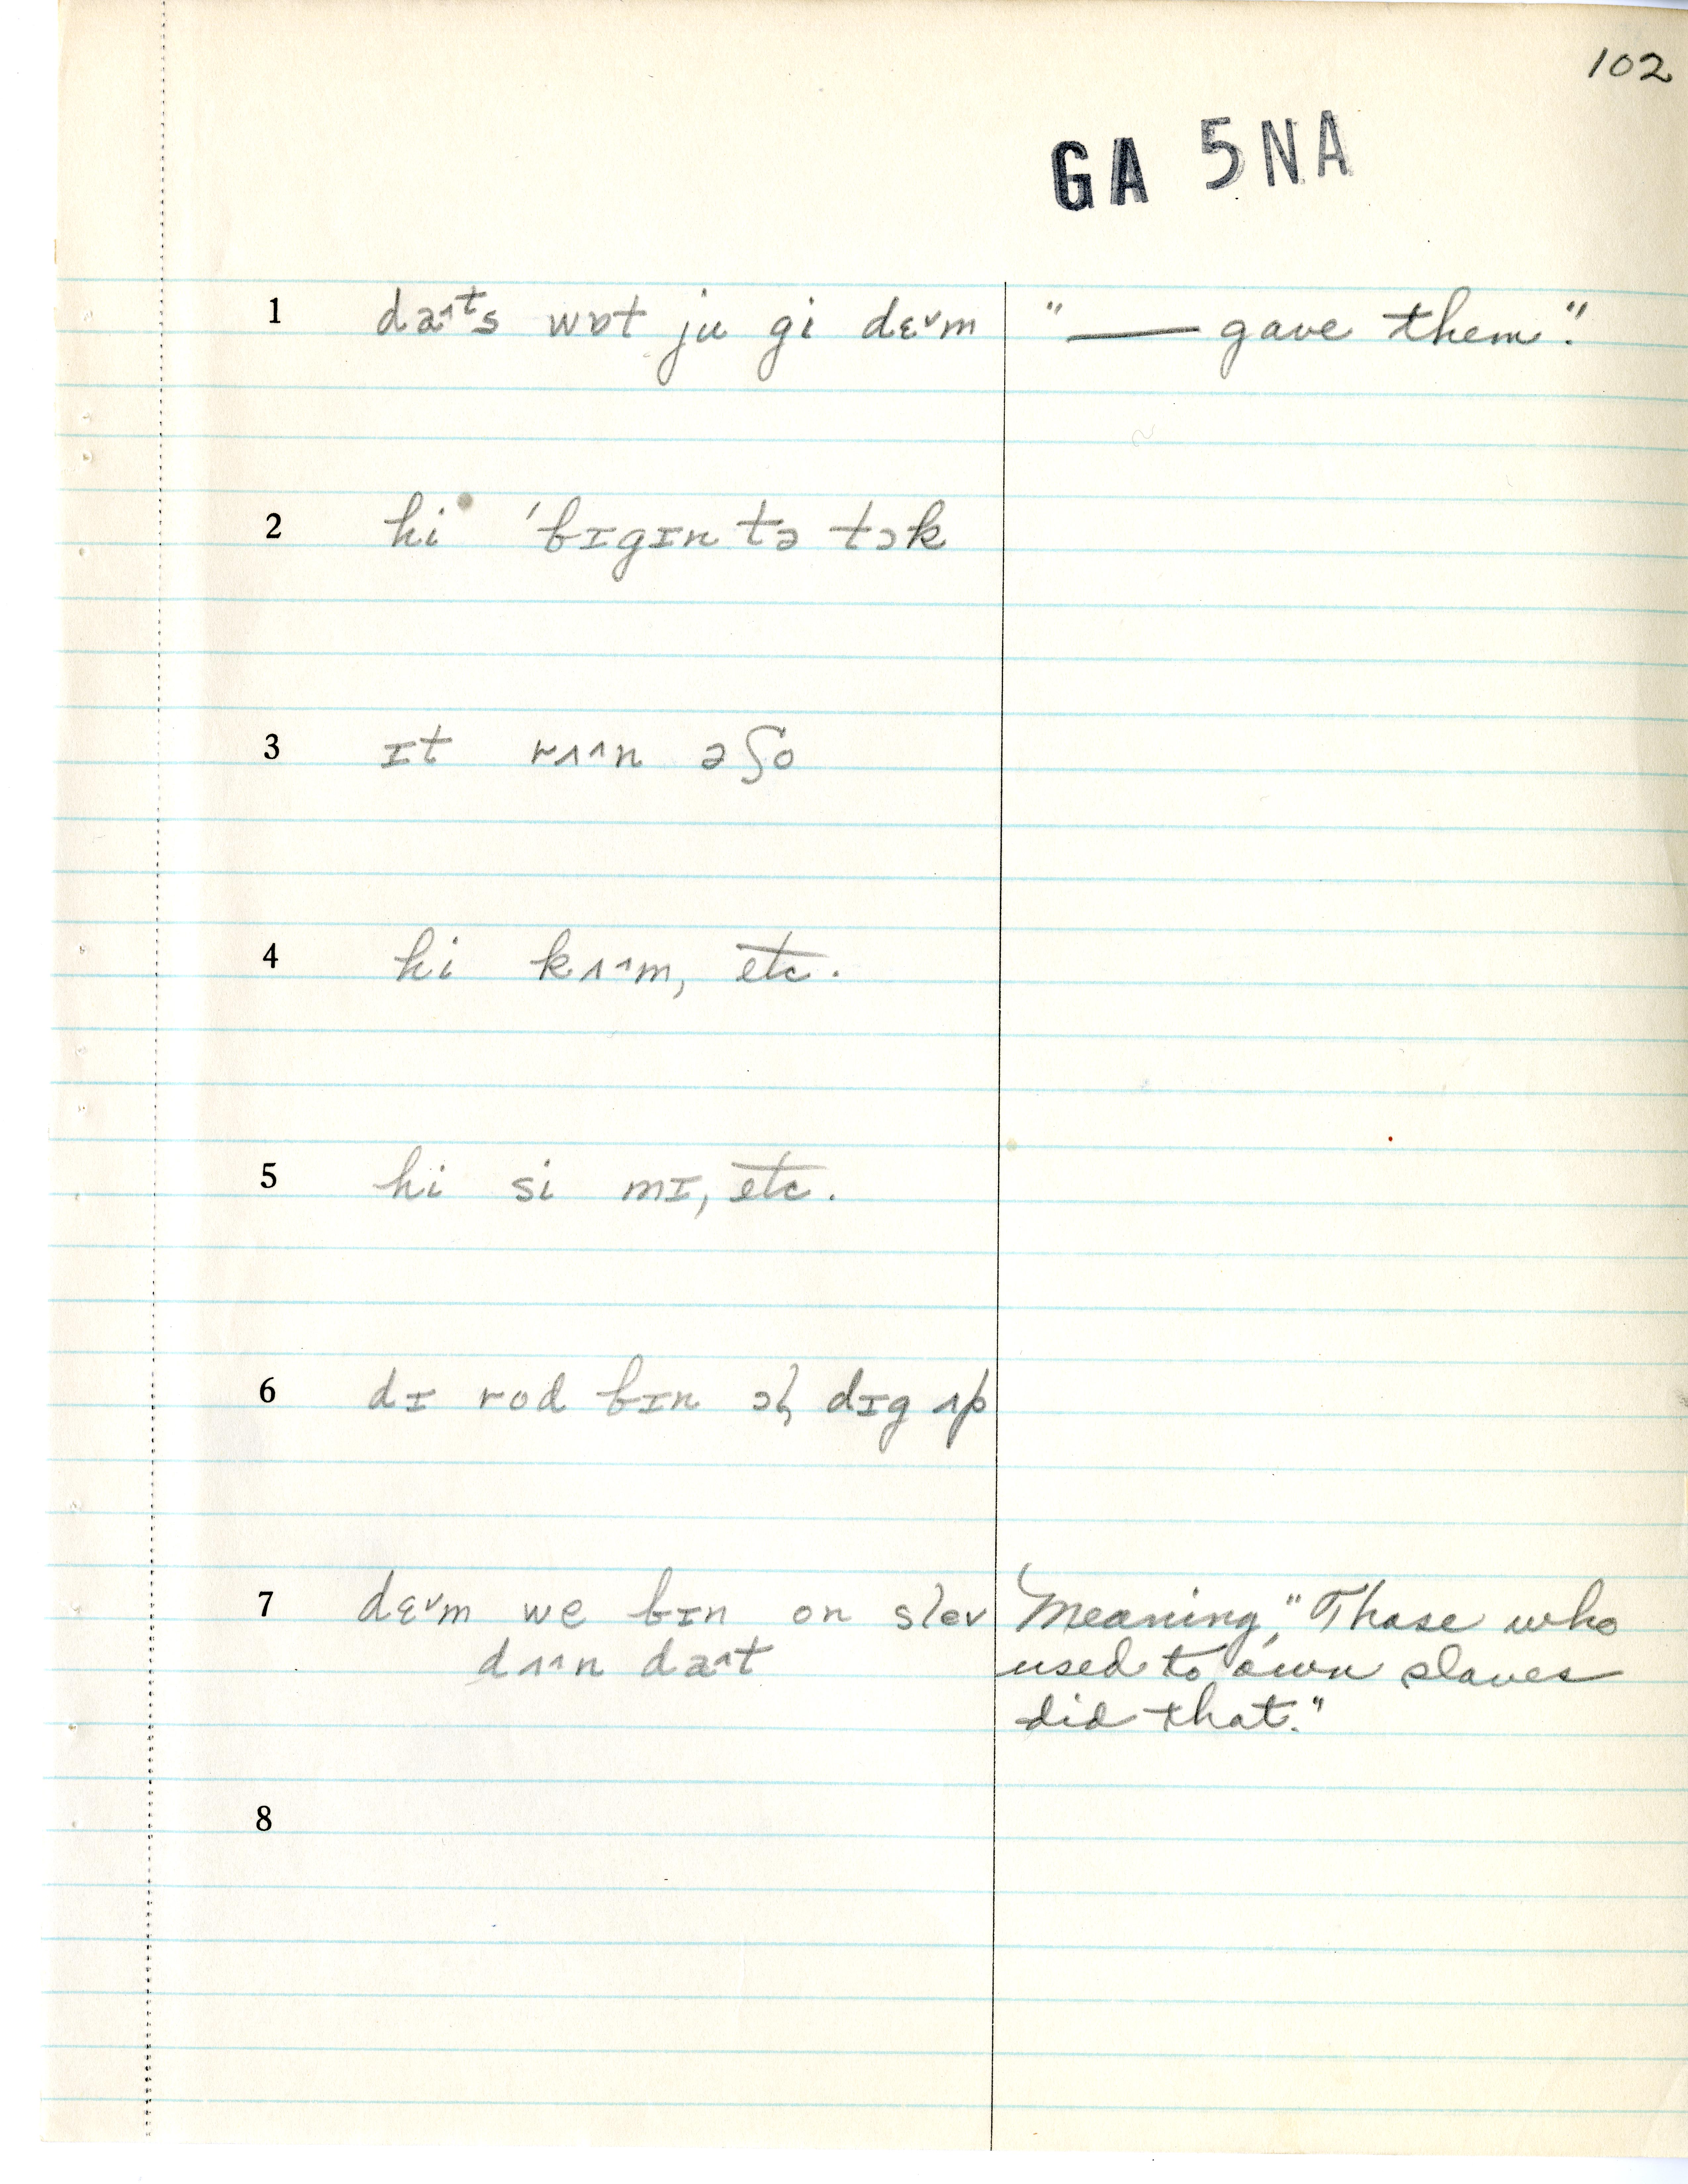 102
GA 5NA
1 da^ts wɒt ju gi dɛ˅m "—— gave them."
2 hi 'bɪgɪn tə tɔk
3 ɪt rʌ^n əʃo
4 hi kʌ^m, etc.
5 hi si mɪ, etc.
6 dɪ rod bɪn ɔɫ dɪg ʌp
7 dɛ˅m we bɪn on slev Meaning, "Those who
dʌ^n da^t used to own slaves
did that."
8